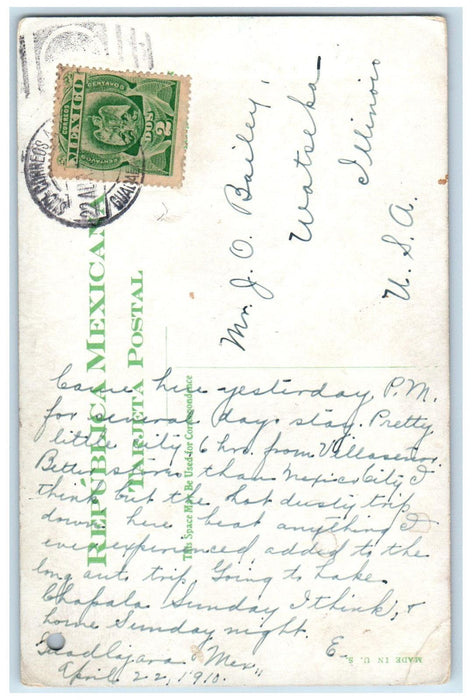 CORREOS
MEXICO
CENTAVOS
DOS 2
CENTAVOS
REPÚBLICA MEXICANA
TARJETA POSTAL
This Space May Be Used for Correspondence
MADE IN U. S.
Mr. J. O. Bailey
Watseka
Illinois
U. S. A.
Came here yesterday P.M.
for several days stay. Pretty
little city 6 hrs. from Villasenor.
Better stores than Mexico City I
think but the hot dusty trip
down here beat anything I
ever experienced added to the
long auto trip. Going to Lake
Chapala Sunday I think, &
home Sunday night.
E.
Guadlajara Mex,
April 22, 1910.